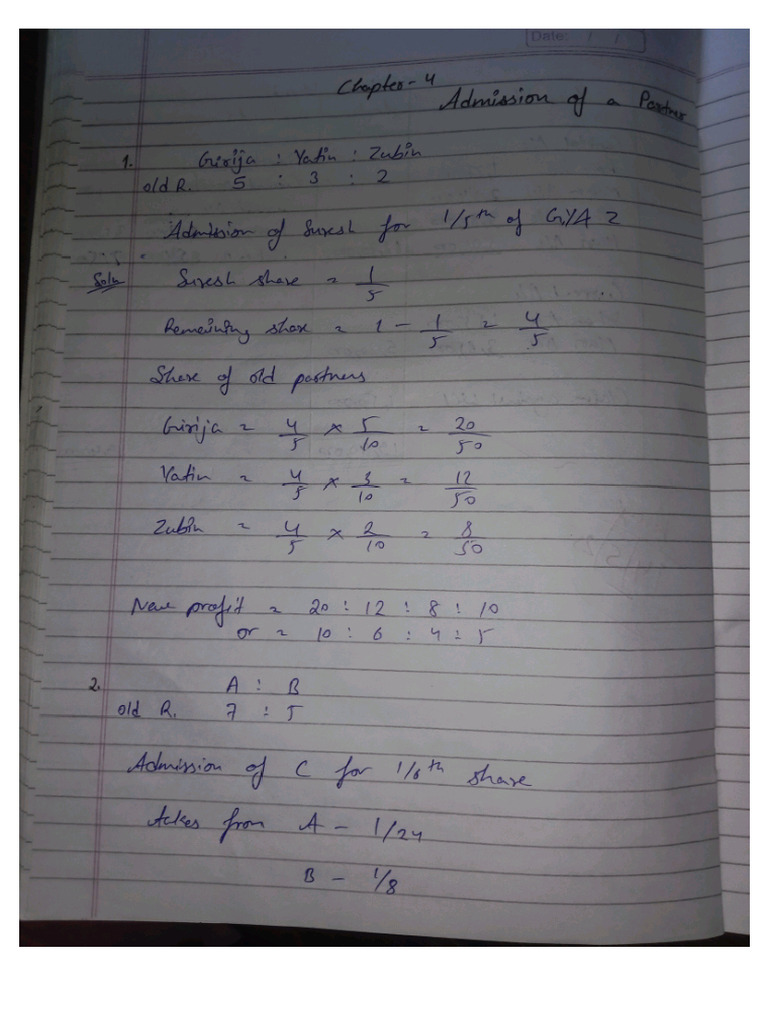 Date: / /
Chapter-4
Admission of a Partner
1. Girija : Yatin : Zubin
old R. 5 : 3 : 2
Admission of Suresh for 1/5th of G,Y,& Z
Soln Suresh share = 1/5
Remaining share = 1 - 1/5 = 4/5
Share of old partners
Girija = 4/5 × 5/10 = 20/50
Yatin = 4/5 × 3/10 = 12/50
Zubin = 4/5 × 2/10 = 8/50
New profit = 20 : 12 : 8 : 10
or = 10 : 6 : 4 : 5
2. A : B
old R. 7 : 5
Admission of C for 1/6th share
from A - 1/24
B - 1/8